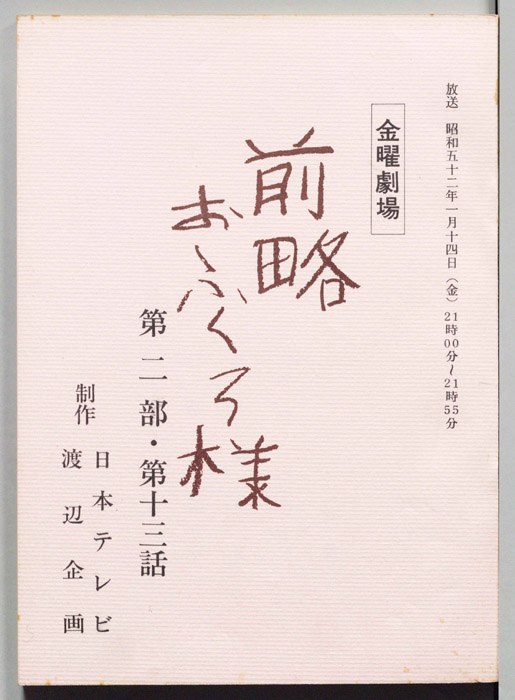 放送　昭和五十二年一月十四日（金）21時00分〜21時55分
金曜劇場
前略
おふくろ様
第二部・第十三話
制作
日本テレビ
渡辺企画